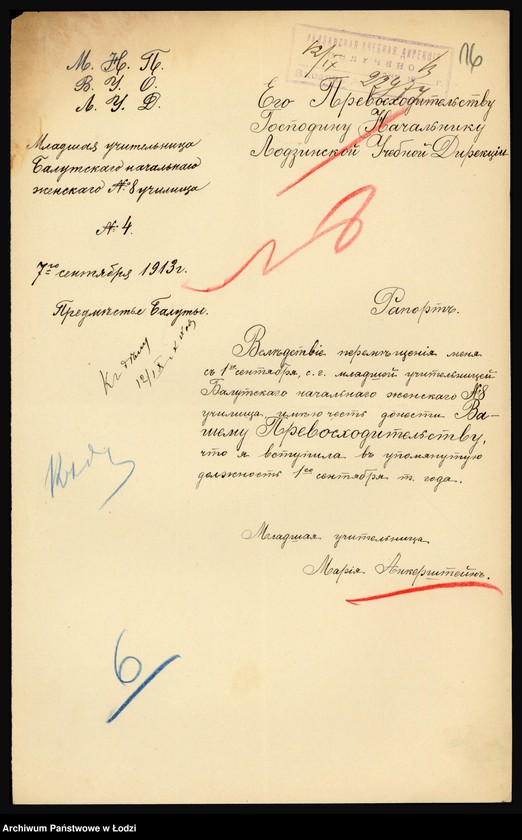 М. Н. П.
В. У. О.
Л. У. Д.
Младшая учительница
Балутскаго начальнаго
женскаго №8 училища
№ 4.
7го сентября 1913 г.
Предмѣстье Балуты.
Къ дѣлу
12/IX
6
12/IX
ЛОДЗИНСКАЯ УЧЕБНАЯ ДИРЕКЦІЯ
ПОЛУЧЕНО
16
Его Превосходительству
Господину Начальнику
Лодзинской Учебной Дирекціи
№8
Рапортъ.
Вслѣдствіе перемѣщенія меня
съ 1го сентября, с. г. младшей учительницей
Балутскаго начальнаго женскаго №8
училища имѣю честь донести Ва-
шему Превосходительству,
что я вступила въ упомянутую
должность 1го сентября т. года.
Младшая учительница
Марія Анкерштейнъ.
Archiwum Państwowe w Łodzi